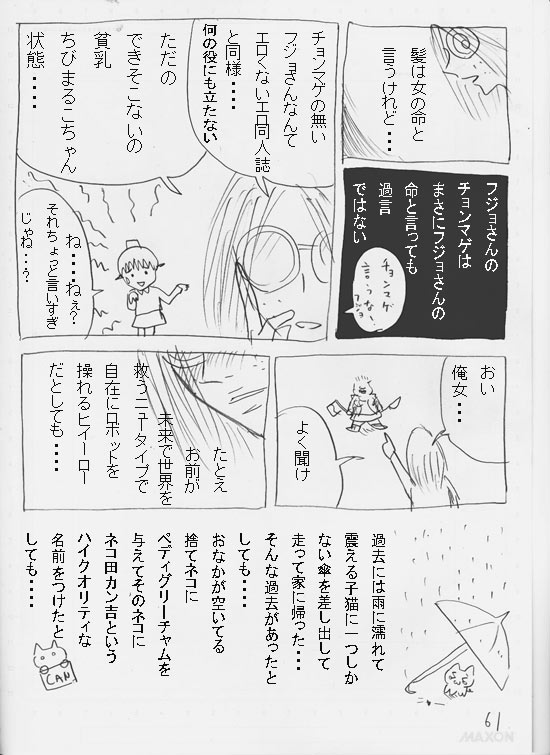 髪は女の命と
言うけれど・・・
チョンマゲの無い
フジョさんなんて
エロくないエロ同人誌
と同様・・・・
何の役にも立たない
ただの
できそこないの
貧乳
ちびまるこちゃん
状態・・・・
フジョさんの
チョンマゲは
まさにフジョさんの
命と言っても
過言
ではない
チョンマゲ
言うな!
ね・・・・ねぇ?
それちょっと言いすぎ
じゃね・・・?
おい
俺女・・・
よく聞け
たとえ
お前が
未来で世界を
救うニュータイプで
自在にロボットを
操れるヒイーロー
だとしても・・・・
過去には雨に濡れて
震える子猫に一つしか
ない傘を差し出して
走って家に帰った・・・
そんな過去があったと
しても・・・・
おなかが空いてる
捨てネコに
ペディグリーチャムを
与えてそのネコに
ネコ田カン吉という
ハイクオリティな
名前をつけたと
しても・・・・
CAN
61
MAXON